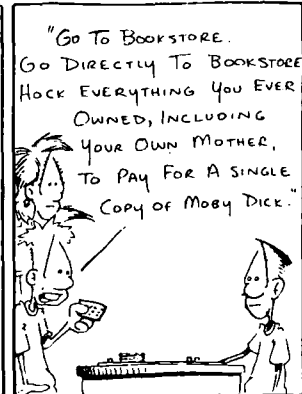 "Go To Bookstore.
Go Directly To Bookstore
Hock Everything You Ever
Owned, Including
Your Own Mother,
To Pay For A Single
Copy of Moby Dick."